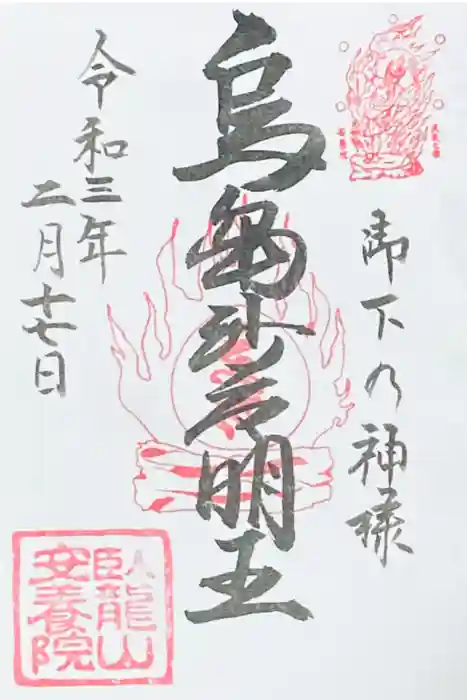 御下の神様
烏芻沙摩明王
令和三年
二月十七日
臥龍山
安養院